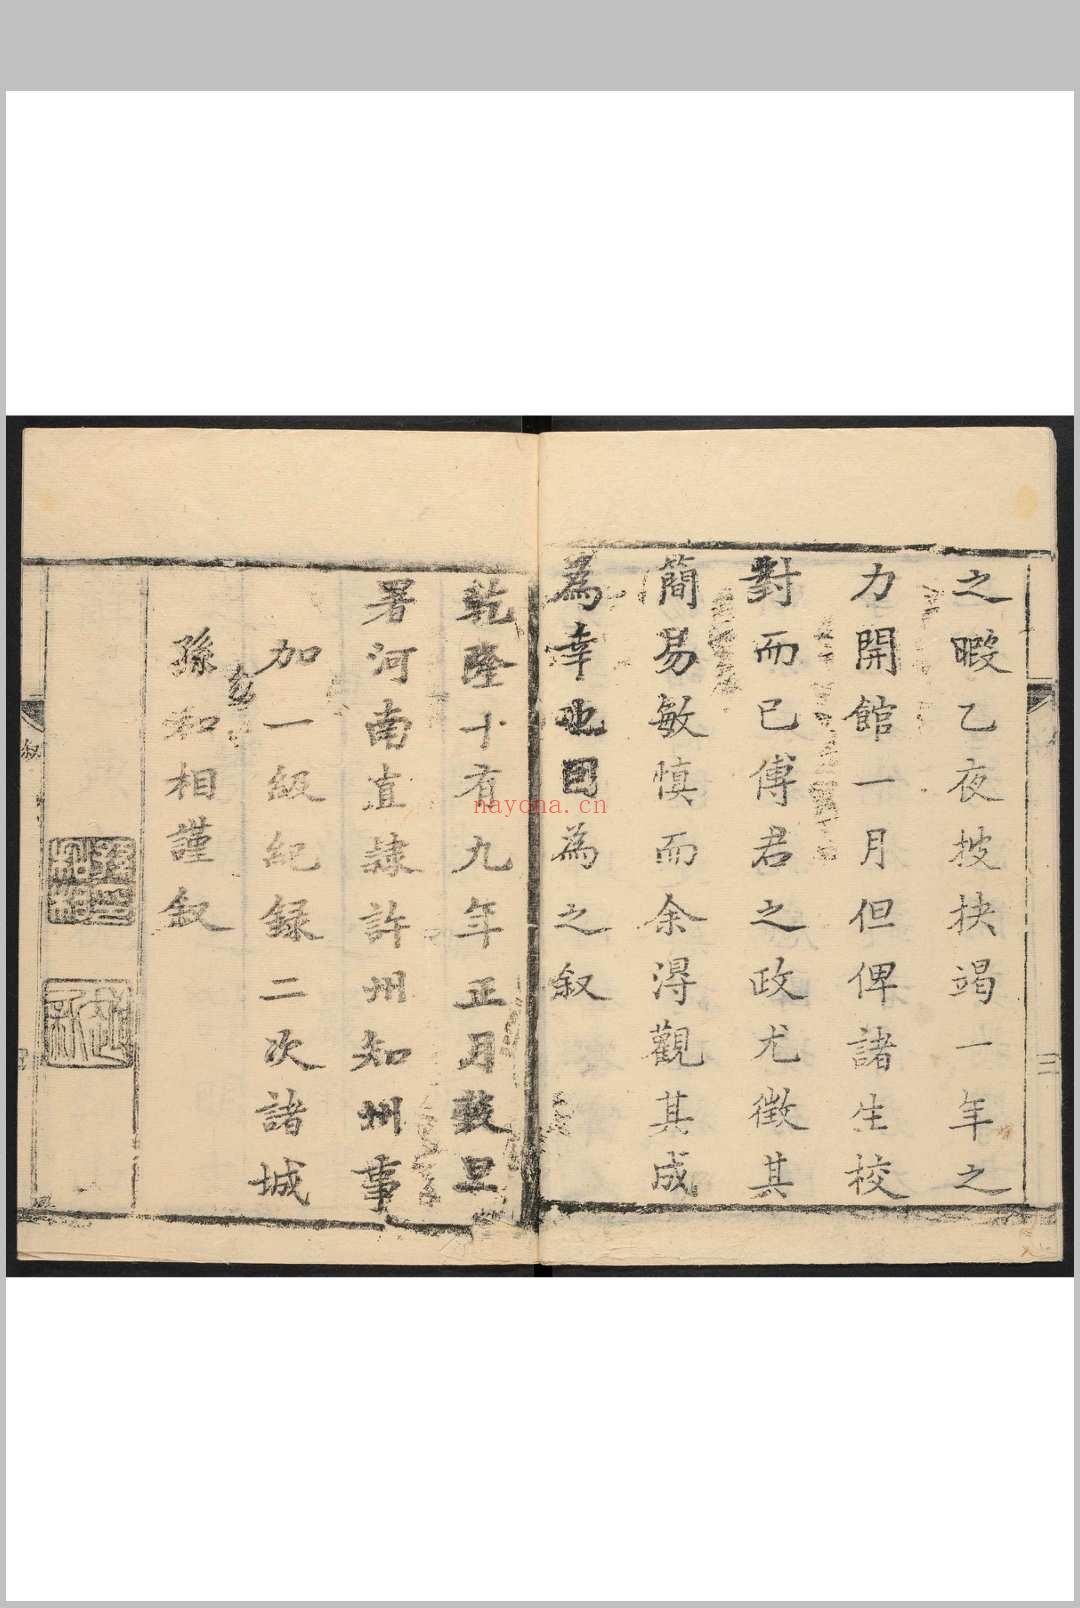 之暇乙夜披抉竭一年之
力開館一月但俾諸生校
對而已傅君之政尤徵其
簡易敏慎而余得觀其成
為幸也因為之叙
乾隆十有九年正月穀旦
署河南直隸許州知州事
加一級紀録二次諸城
孫和相謹叙
叙
nayona.cn